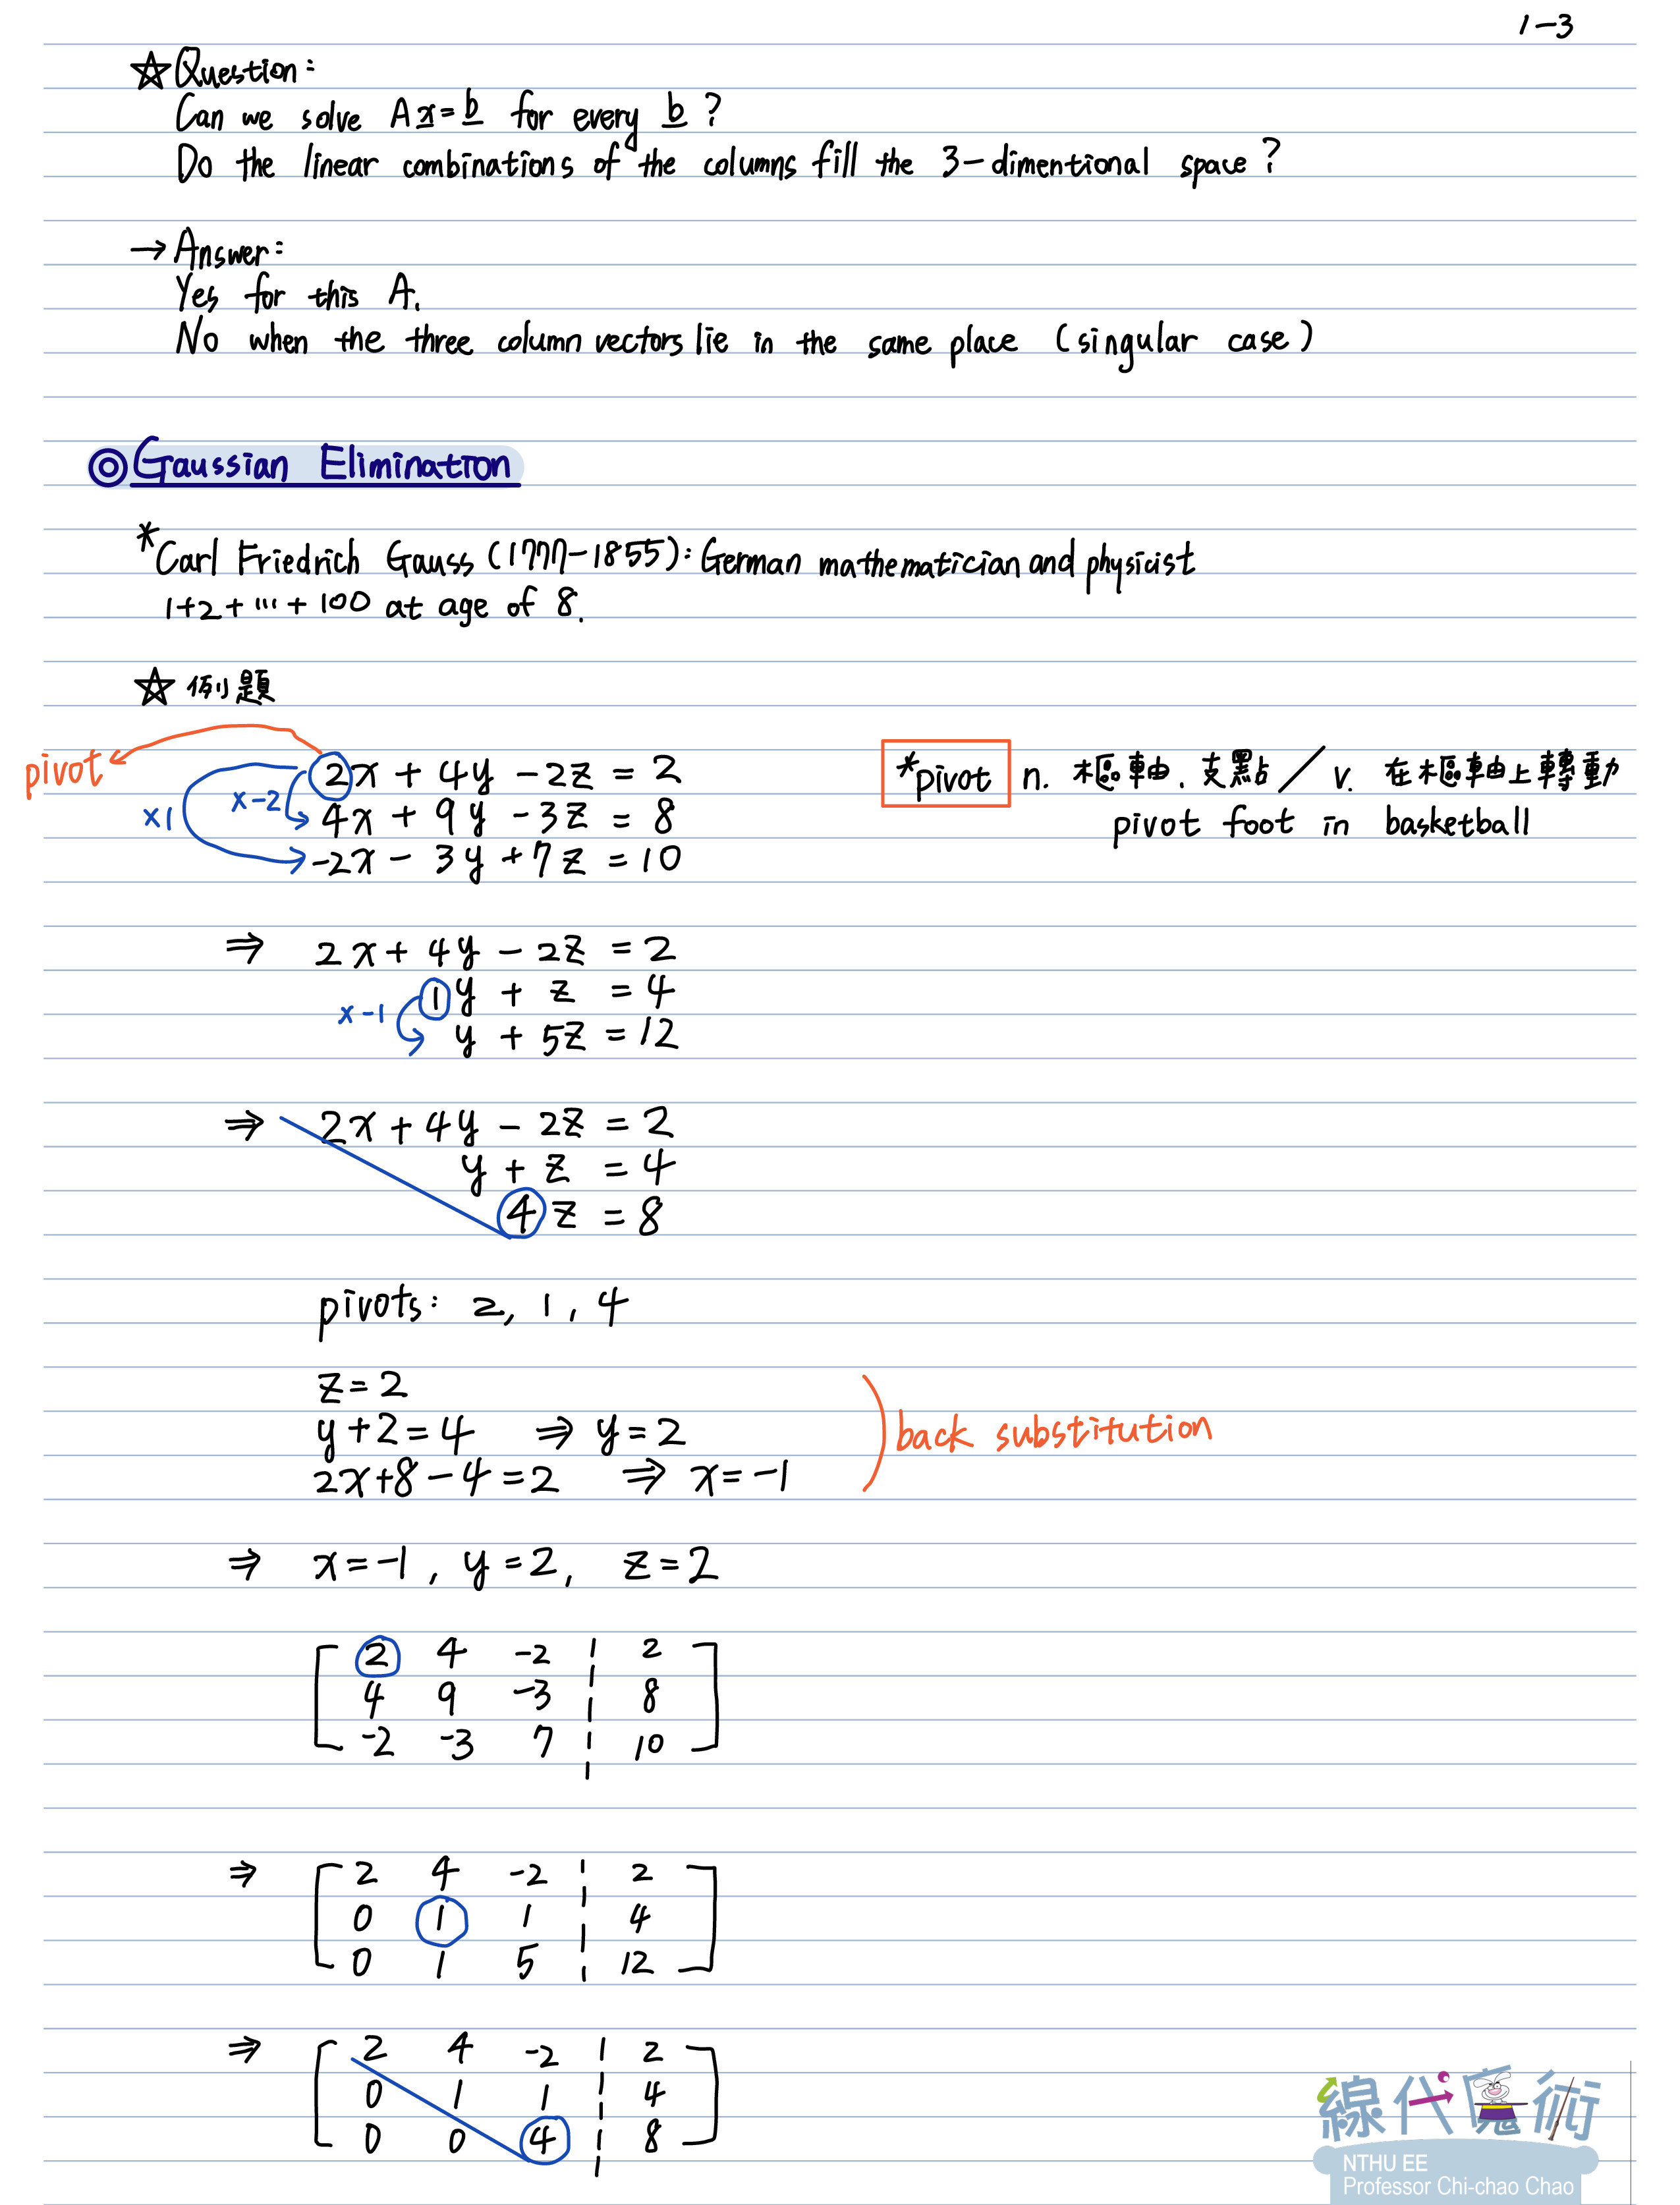 1-3
☆Question:
Can we solve Ax=b for every b?
Do the linear combinations of the columns fill the 3-dimentional space?
→ Answer:
Yes for this A.
No when the three column vectors lie in the same place (singular case)
◎ Gaussian Elimination
*Carl Friedrich Gauss (1777-1855): German mathematician and physicist
1+2+…+100 at age of 8.
☆ 例題
pivot
2x + 4y - 2z = 2
*pivot n. 樞軸.支點/ v. 在樞軸上轉動
×1
×-2
4x + 9y - 3z = 8
pivot foot in basketball
-2x - 3y + 7z = 10
⇒ 2x + 4y - 2z = 2
1y + z = 4
×-1
y + 5z = 12
⇒ 2x + 4y - 2z = 2
y + z = 4
4z = 8
pivots: 2, 1, 4
z = 2
y + 2 = 4 ⇒ y = 2
back substitution
2x + 8 - 4 = 2 ⇒ x = -1
⇒ x = -1, y = 2, z = 2
2 4 -2 2
4 9 -3 8
-2 -3 7 10
⇒ 2 4 -2 2
0 1 1 4
0 1 5 12
⇒ 2 4 -2 2
0 1 1 4
0 0 4 8
線代魔術
NTHU EE
Professor Chi-chao Chao